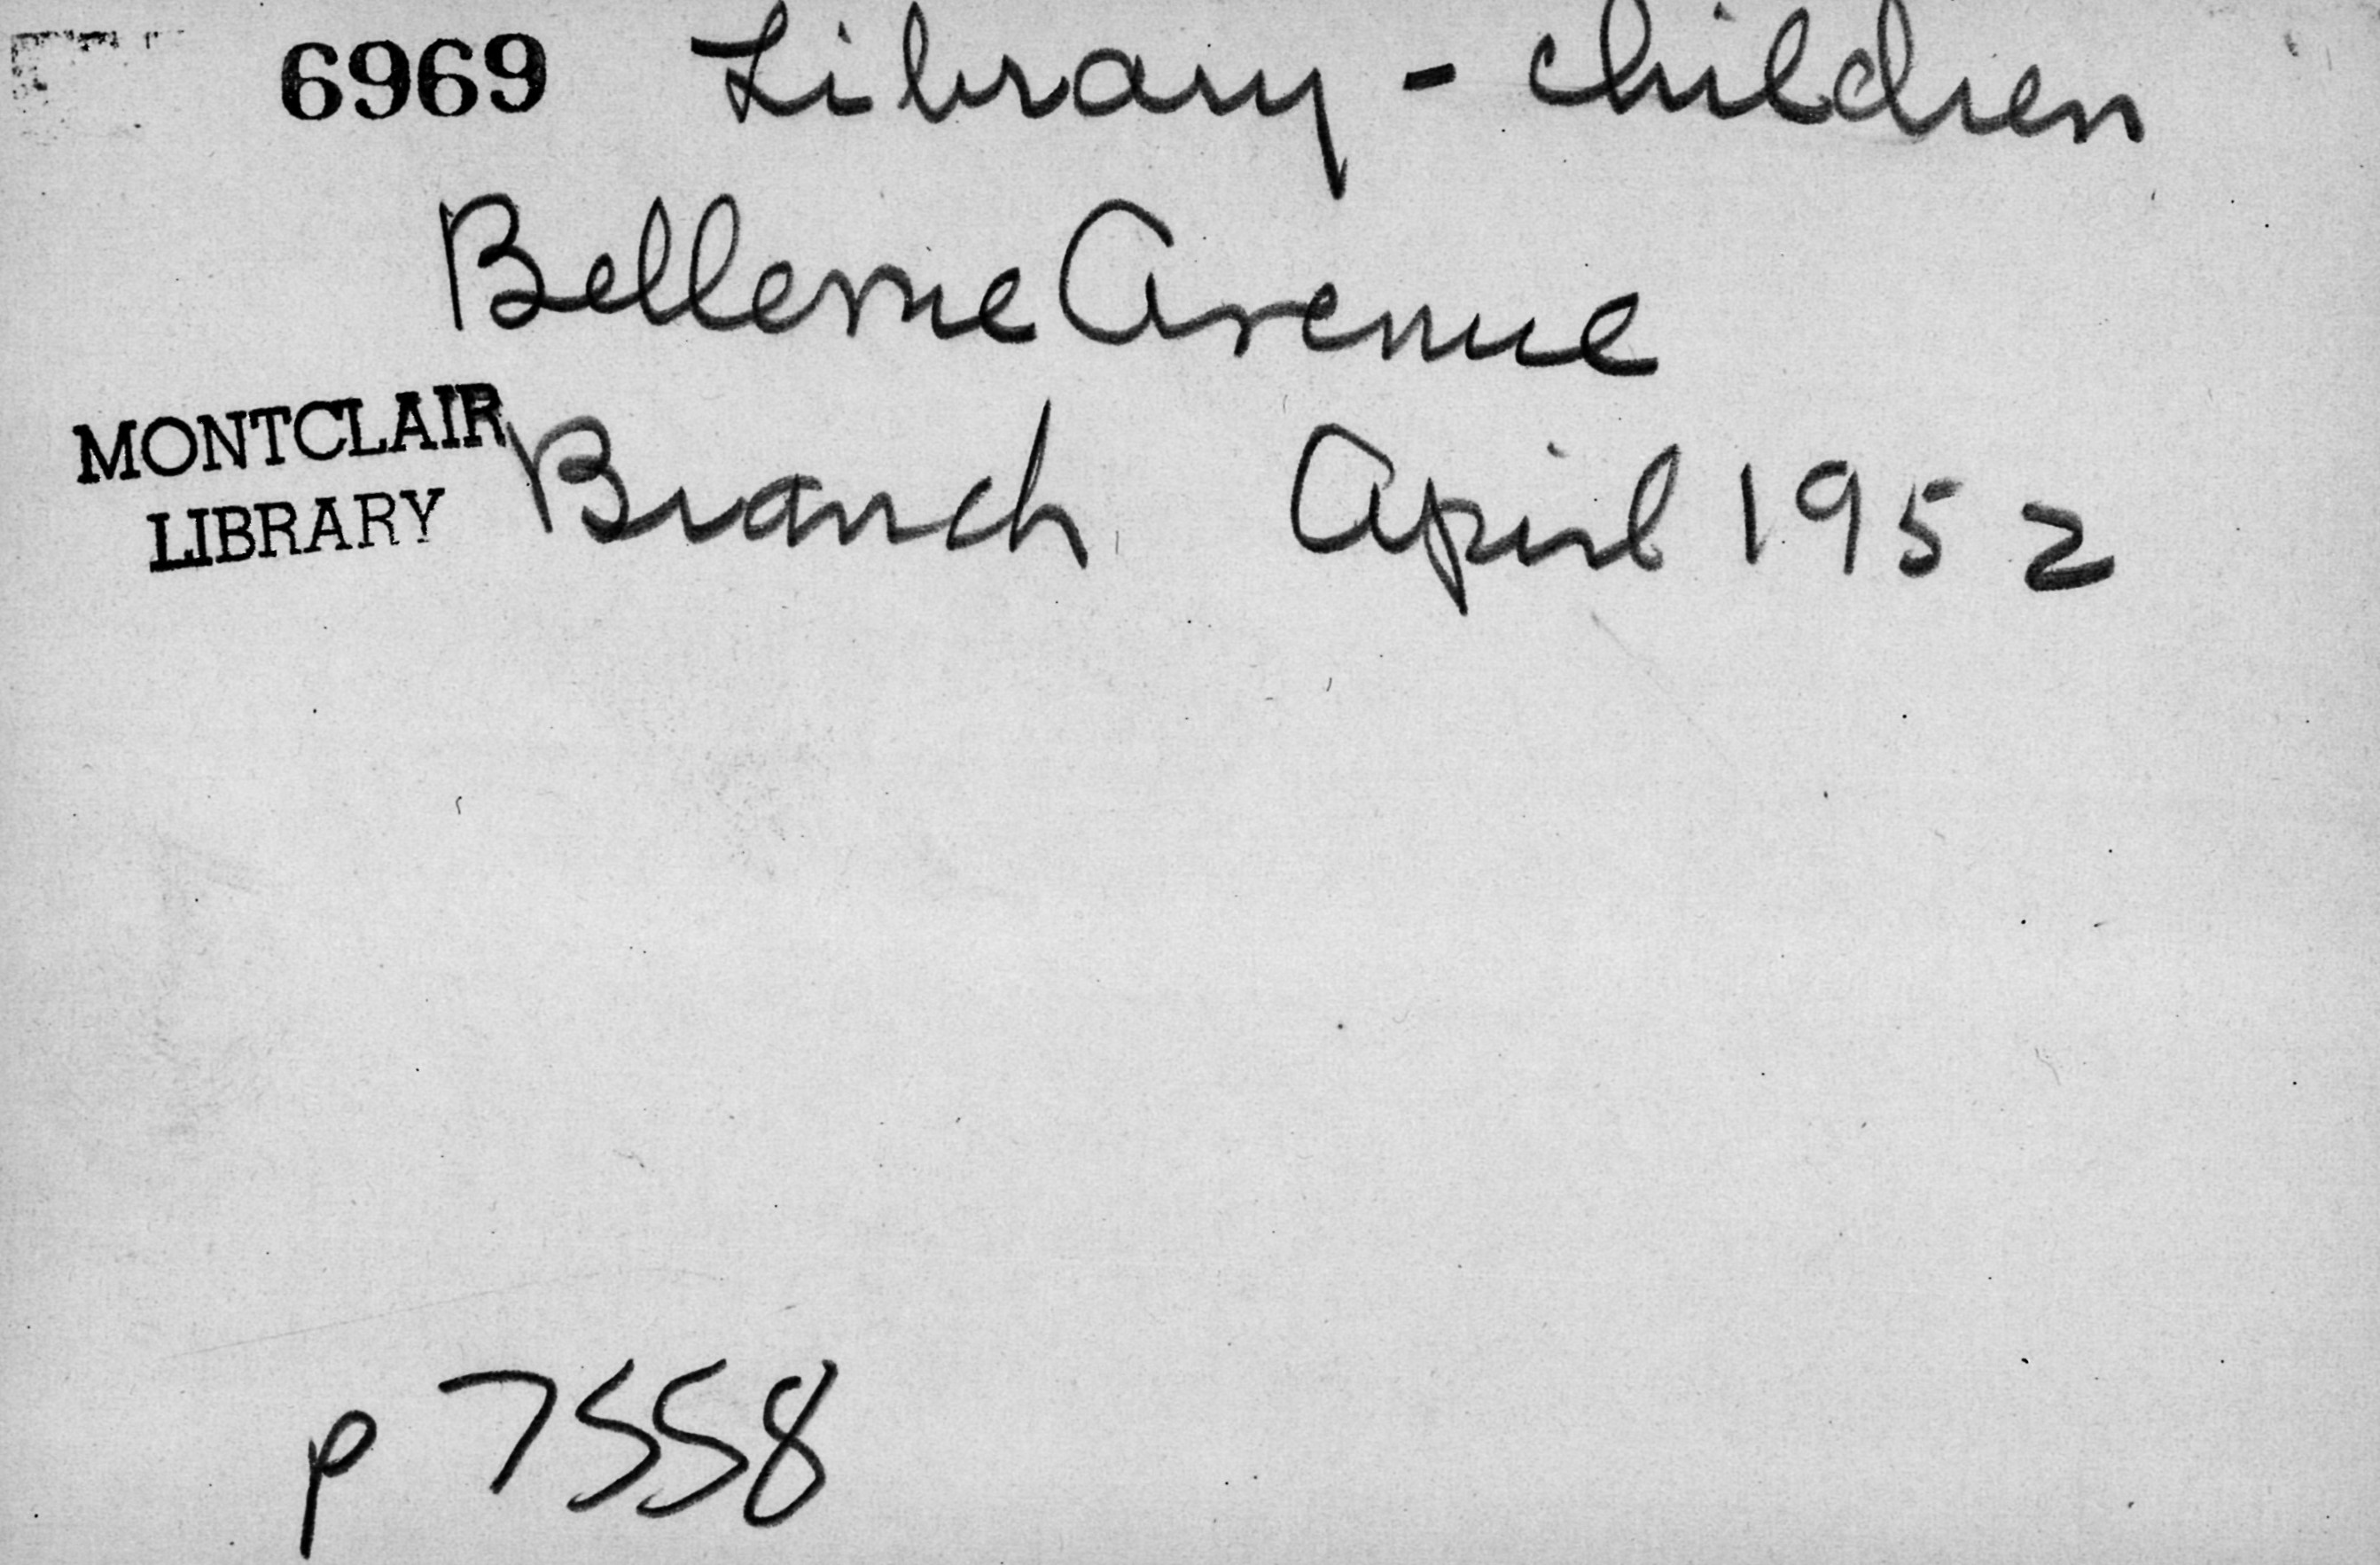 6969 Library - children
Bellevue Avenue
MONTCLAIR
LIBRARY
Branch April 1952
p 7558